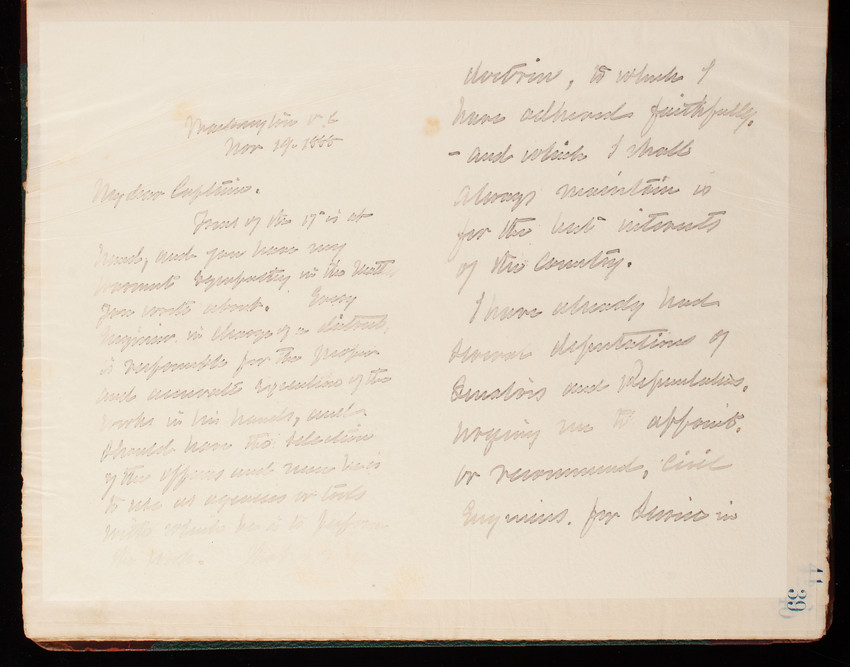 Washington D.C.
Nov 19. 1888
My dear Captain.
Yours of the 17" is at
hand, and you have my
warmest sympathy in the matter
you write about. Every
Engineer in charge of a district,
is responsible for the proper
and accurate execution of the
works in his hands, and
should have the selection
of the officers and men he is
to use as agencies or tools
with which he is to perform
the work. That is my
doctrine, to which I
have adhered faithfully,
- and which I shall
always maintain is
for the best interests
of the Country.
I have already had
several deputations of
Senators and Representatives,
urging me to appoint,
or recommend, civil
Engineers. for service in
41
39